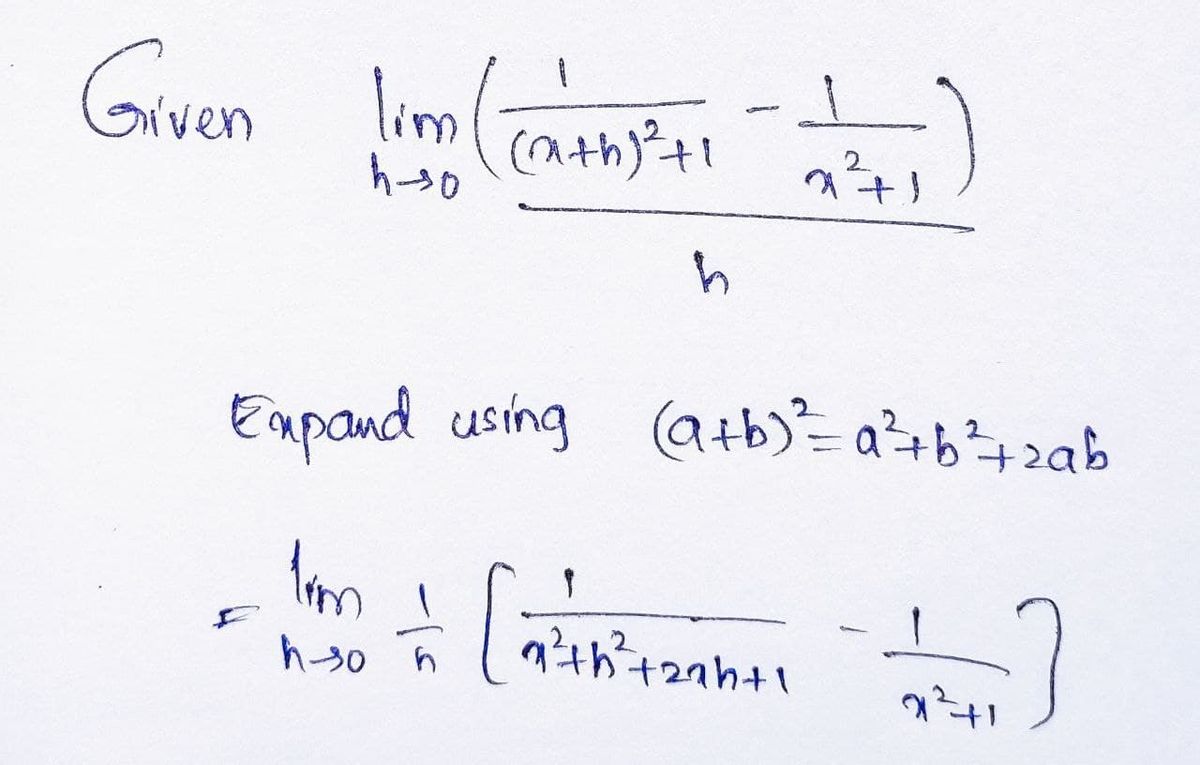 Given lim h→0 (1/((x+h)²+1) - 1/(x²+1)) / h
Expand using (a+b)² = a²+b²+2ab
= lim h→0 1/h [1/(x²+h²+2xh+1) - 1/(x²+1)]